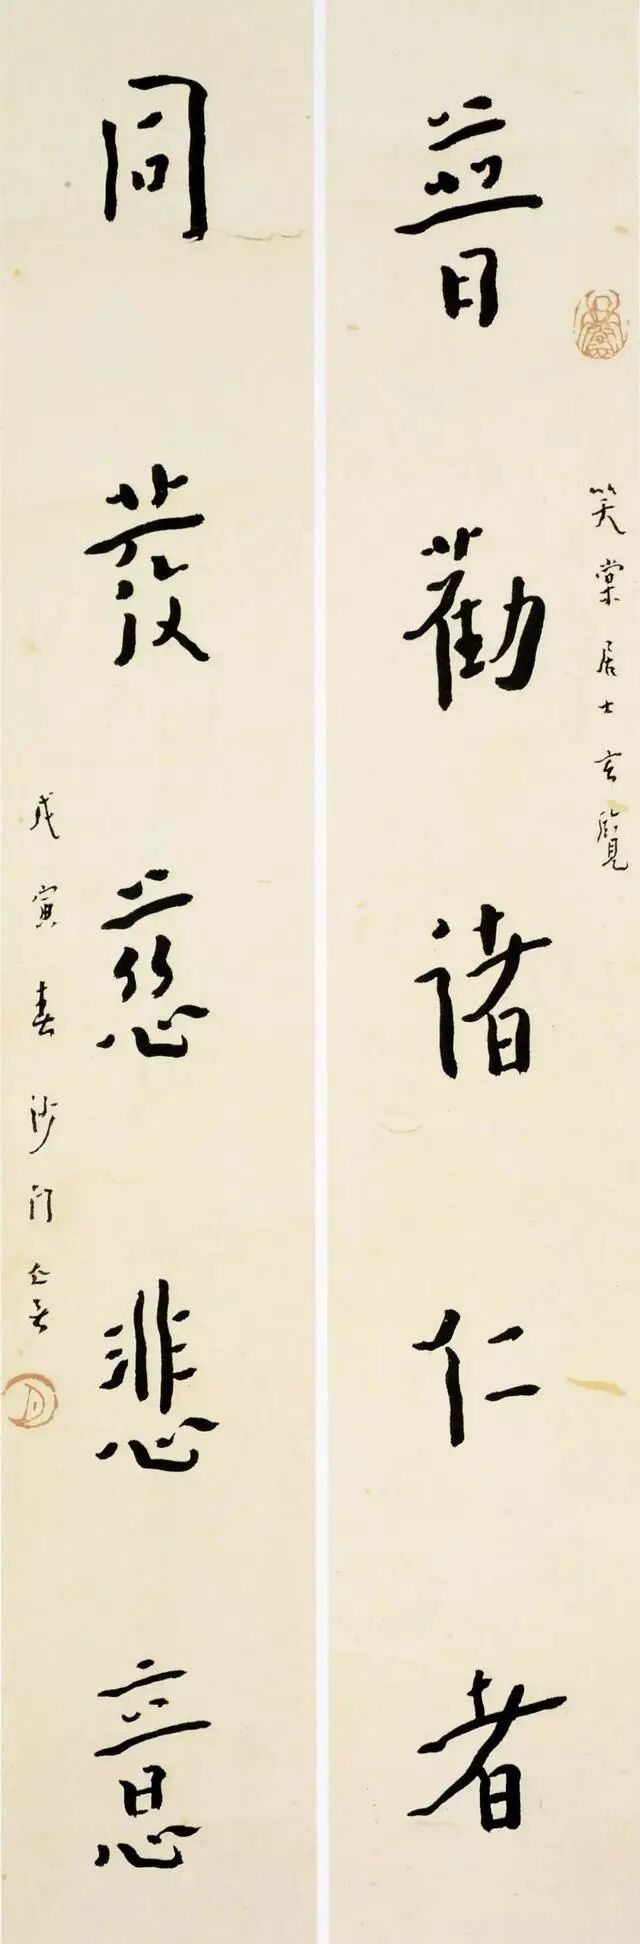 笑棠居士玄覽
普勸諸仁者
同發慈悲意
戊寅春沙門